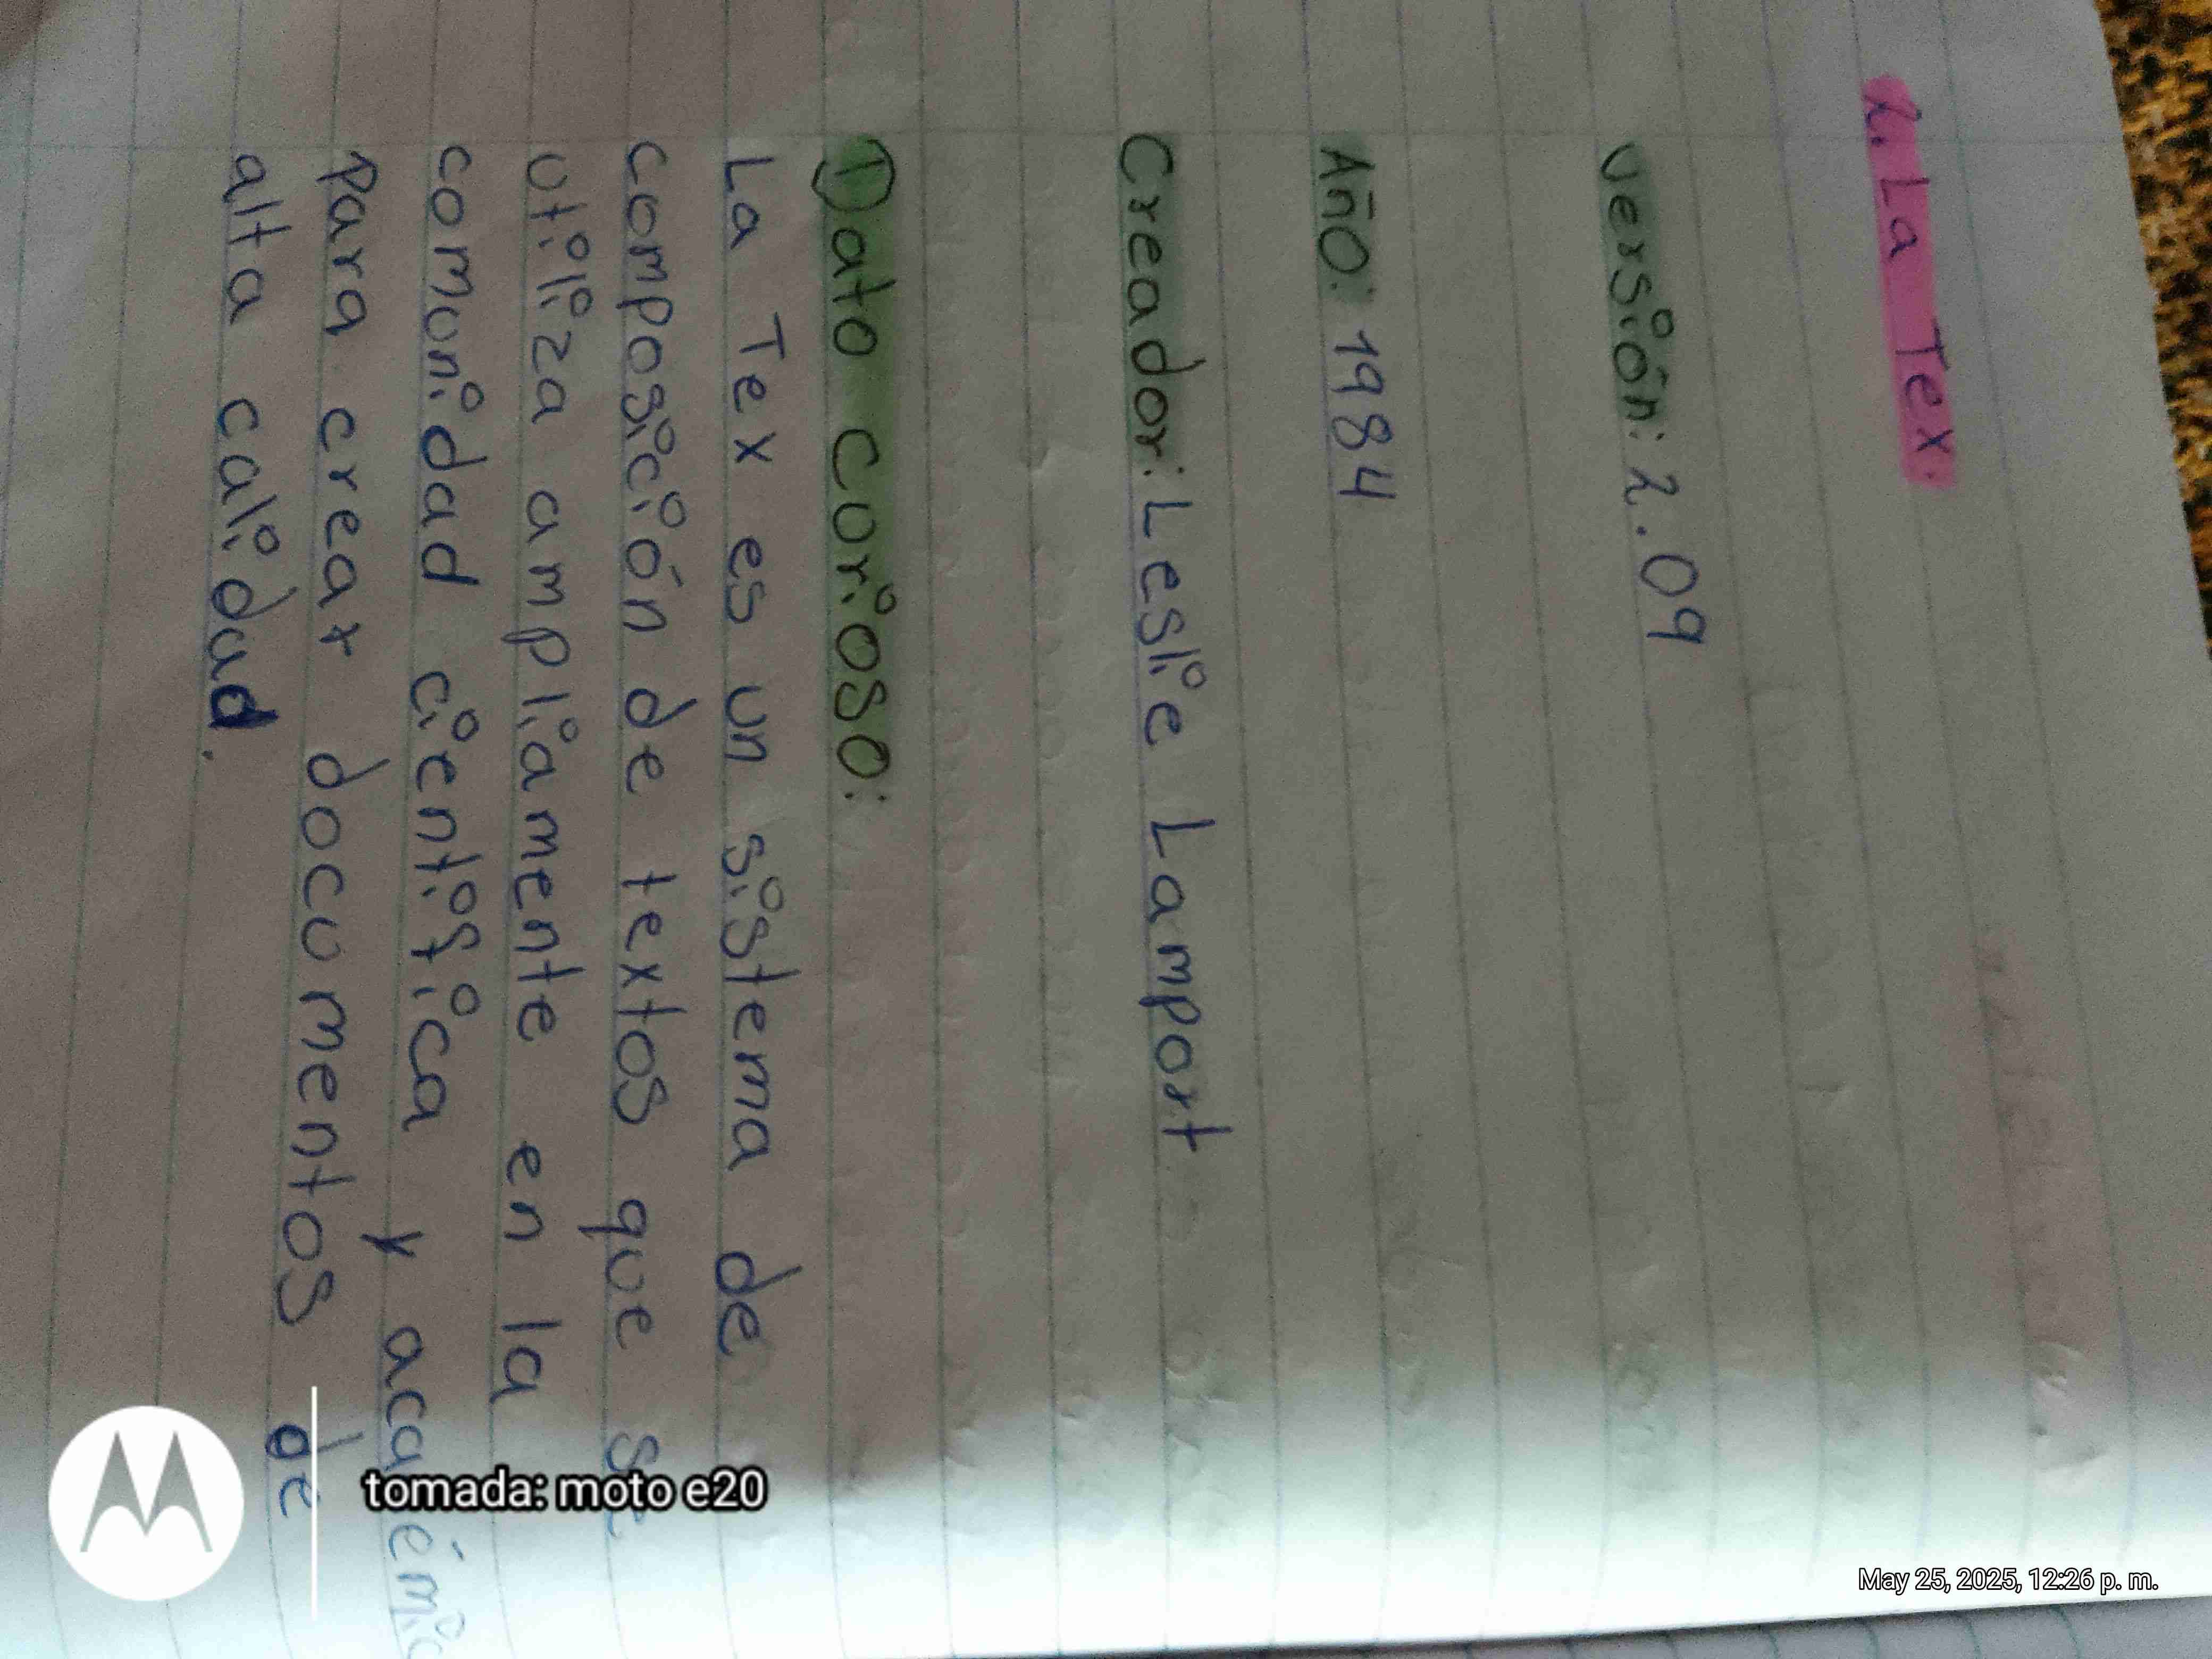 2. La Tex.
Versión: 2.09
Año: 1984
Creador: Leslie Lamport
Dato Curioso:
La Tex es un sistema de
composición de textos que se
utiliza ampliamente en la
comunidad científica y académic
para crear documentos de
alta calidad.
tomada: moto e20
May 25, 2025, 12:26 p. m.